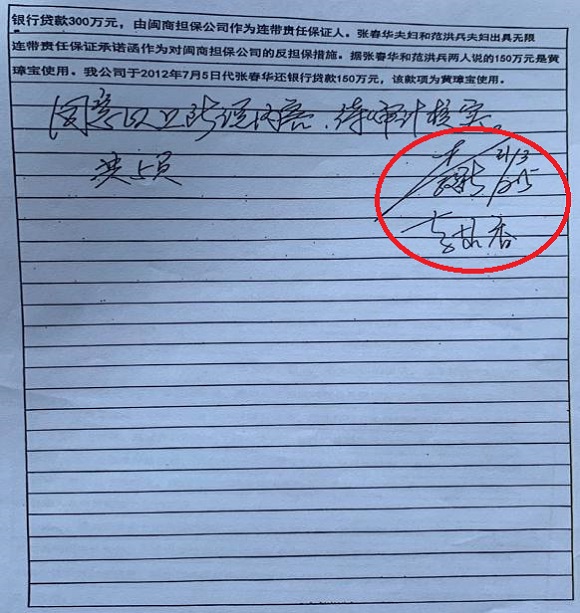 银行贷款300万元，由闽商担保公司作为连带责任保证人。张春华夫妇和范洪兵夫妇出具无限
连带责任保证承诺函作为对闽商担保公司的反担保措施。据张春华和范洪兵两人说的150万元是黄
璋宝使用。我公司于2012年7月5日代张春华还银行贷款150万元，该款项为黄璋宝使用。
同意以上所须内容、待审计核实。
21/3